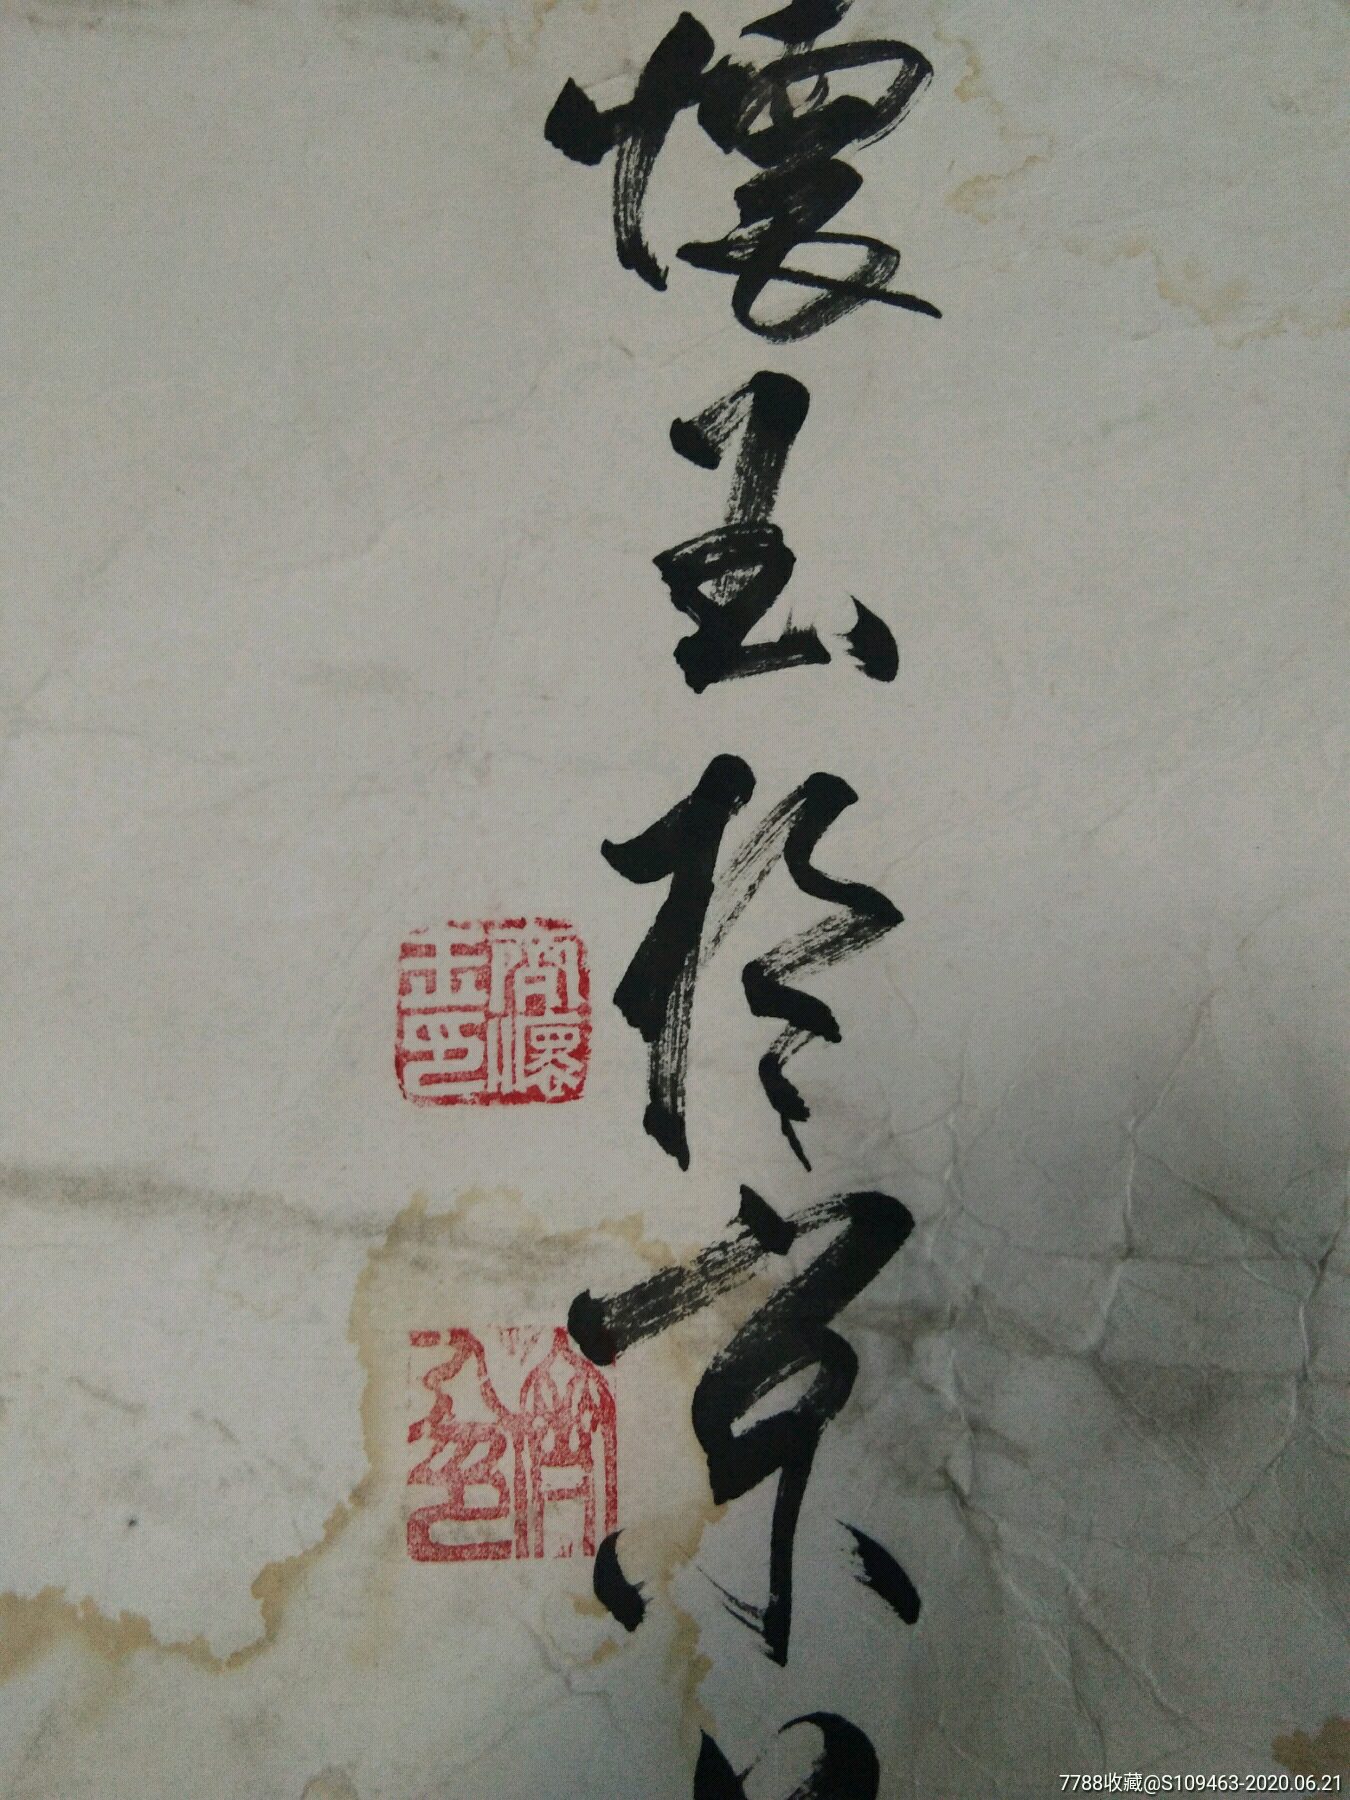 懷玉於京
商懷
玉印
7788收藏@S109463-2020.06.21